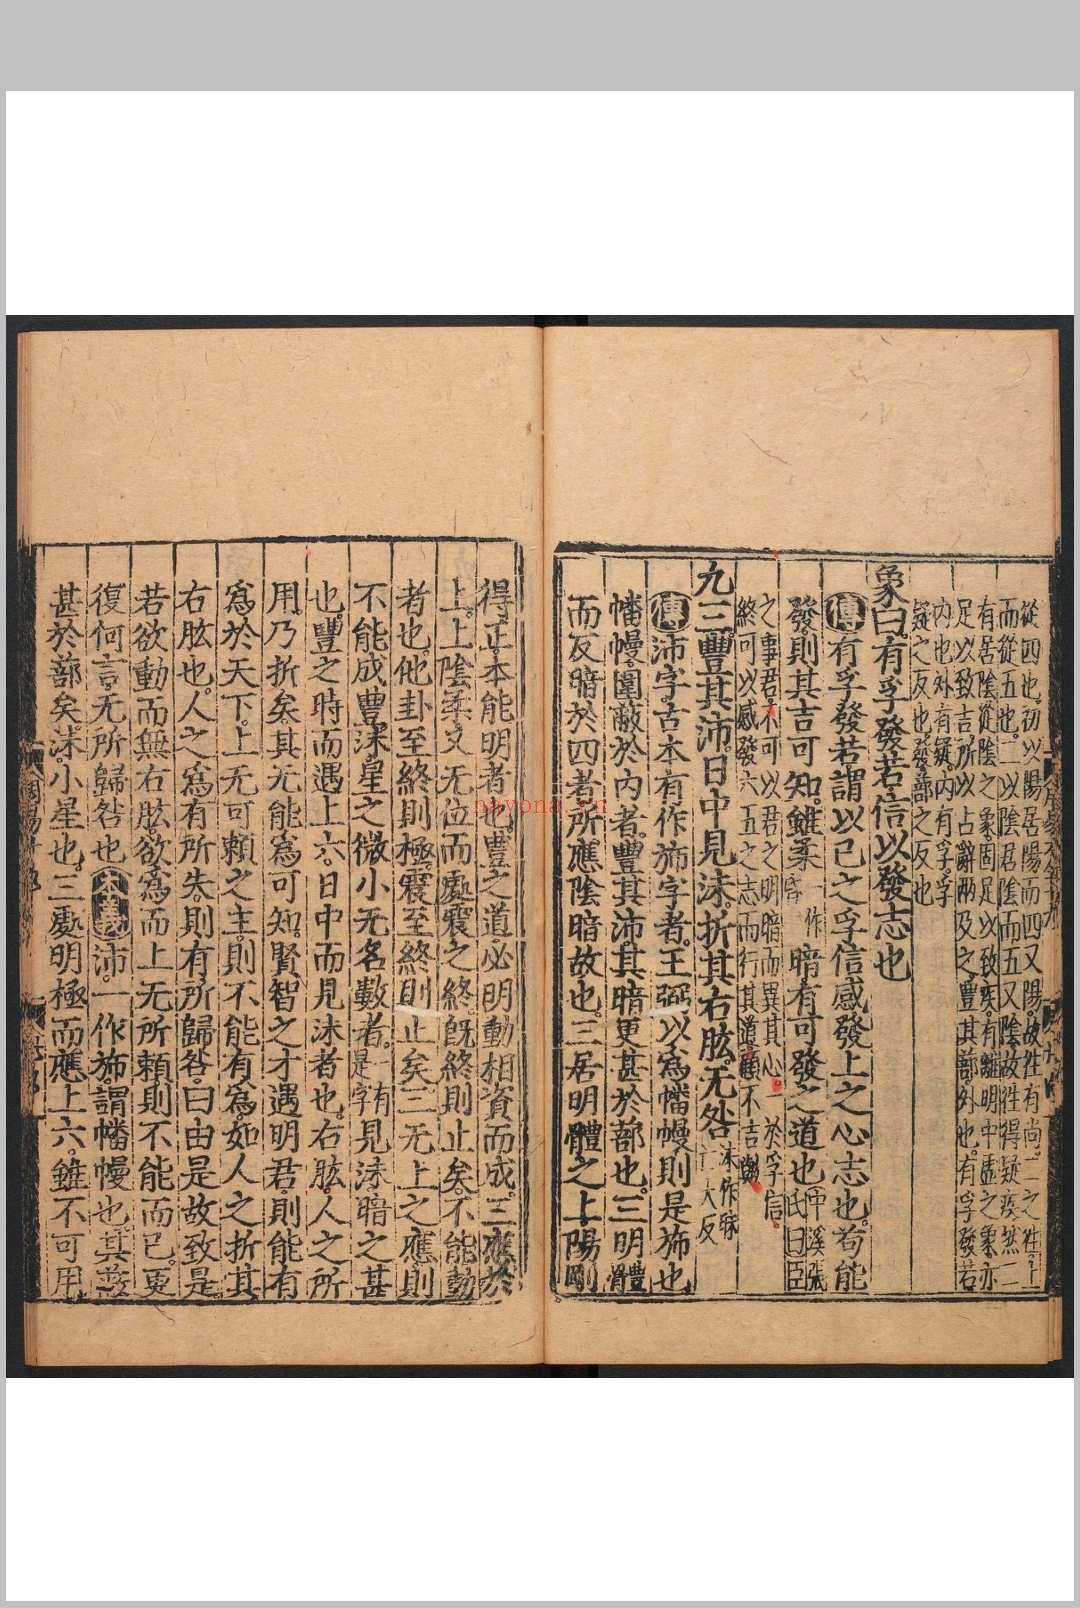 從四也。初以陽居陽而四又陽。故往有尚。二之往。上
而從五也。二以陰居陰而五又陰故往得疑疾。然二
有居陰從陰之象固足以致疾。有離明中虛之象亦
足以致吉。所以占辭兩及之。豐其蔀。外也。有孚發若
內也。外有疑。內有孚。孚
疑之反也。發蔀之反也
象曰。有孚發若。信以發志也
傳有孚發若。謂以己之孚信感發上之心志也。苟能
發。則其吉可知。雖柔昏一作暗有可發之道也中溪張氏曰臣
之事君。不可以君之明暗而異其心。一於孚信。
終可以感發六五之志而行其道。
九三。豐其沛。日中見沬。折其右肱。无咎
傳沛字。古本有作旆字者。王弼以爲幡幔。則是旆也
幡幔。圍蔽於内者。豐其沛。其暗更甚於蔀也。三明體
而反暗於四者。所應陰暗故也。三居明體之上。陽剛
得正。本能明者也。豐之道。必明動相資而成。三應於
上。上陰柔又无位而處震之終。旣終則止矣。不能動
者也。他卦至終則極。震至終則止矣。三无上之應。則
不能成豐。沬。星之微小无名數者。一有是字見沬。暗之甚
也。豐之時而遇上六。日中而見沬者也。右肱。人之所
用。乃折矣。其无能爲可知。賢智之才遇明君。則能有
爲於天下。上无可賴之主。則不能有爲。如人之折其
右肱也。人之爲有所失。則有所歸咎。曰由是故致是。
若欲動而無右肱。欲爲而上无所賴。則不能而已。更
復何言。无所歸咎也本義沛。一作旆。謂幡幔也。其蔽
甚於蔀矣。沬。小星也。三處明極而應上六。雖不可用
nayona.cn